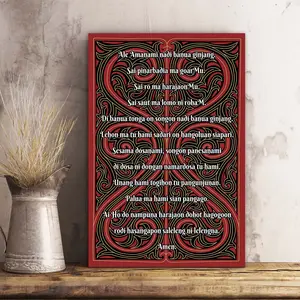 Ale Amanami nadi banua ginjang.
Sai pinarbadia ma goarMu.
Sai ro ma harajaonMu.
Sai saut ma lomo ni rohaM.
Di banua tonga on songon nadi banua ginjang.
Lehon ma tu hami sadari on hangoluan siapari.
Sesama dosanami, songon panesanami
di dosa ni dongan namardosa tu hami.
Unang hami togihon tu pangunjunan.
Palua ma hami sian pangago.
Ai Ho do nampuna harajaon dohot hagogoon
rodi hasangapon saleleng ni lelengna.
Amen.